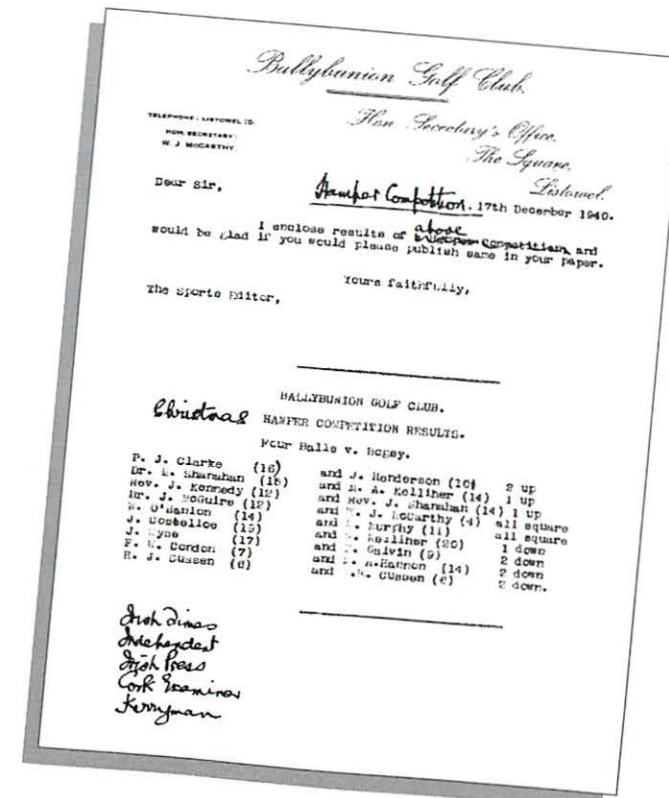 Ballybunion Golf Club.
TELEPHONE: LISTOWEL
HON. SECRETARY:
W. J. McCARTHY
Hon. Secretary's Office,
The Square,
Listowel.
Dear Sir,
Hamper Competition. 17th December 1940.
I enclose results of above Competition, and
would be glad if you would please publish same in your paper.
Yours faithfully,
The Sports Editor,
BALLYBUNION GOLF CLUB.
Christmas HAMPER COMPETITION RESULTS.
Four Balls v. Bogey.
P. J. Clarke (16) and J. Henderson (10) 2 up
Dr. Shanahan (18) and A. Kelliher (14) 1 up
Rev. J. Kennedy (12) and Rev. J. Shanahan (14) 1 up
Dr. J. McGuire (12) and J. McCarthy (4) all square
O'Hanlon (14) and Murphy (11) all square
J. Costelloe (15) and Kelliher (20) 1 down
J. (17) and Galvin (9) 2 down
F. Condon (7) and Hannon (14) 2 down
R. J. Cussen (6) and Cussen (6) 2 down.
Irish Times
Independent
Irish Press
Cork Examiner
Kerryman